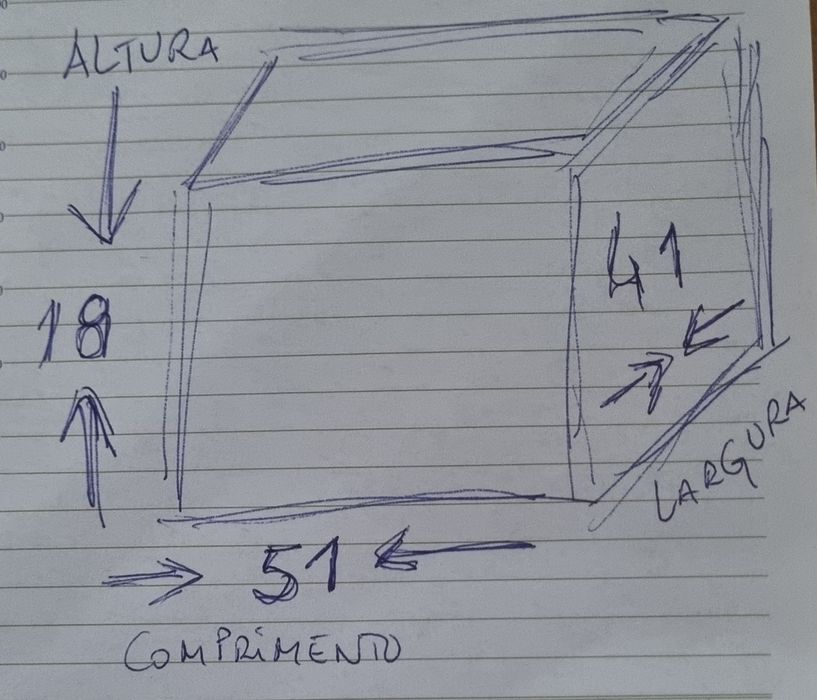 ALTURA
18
41
LARGURA
51
COMPRIMENTO